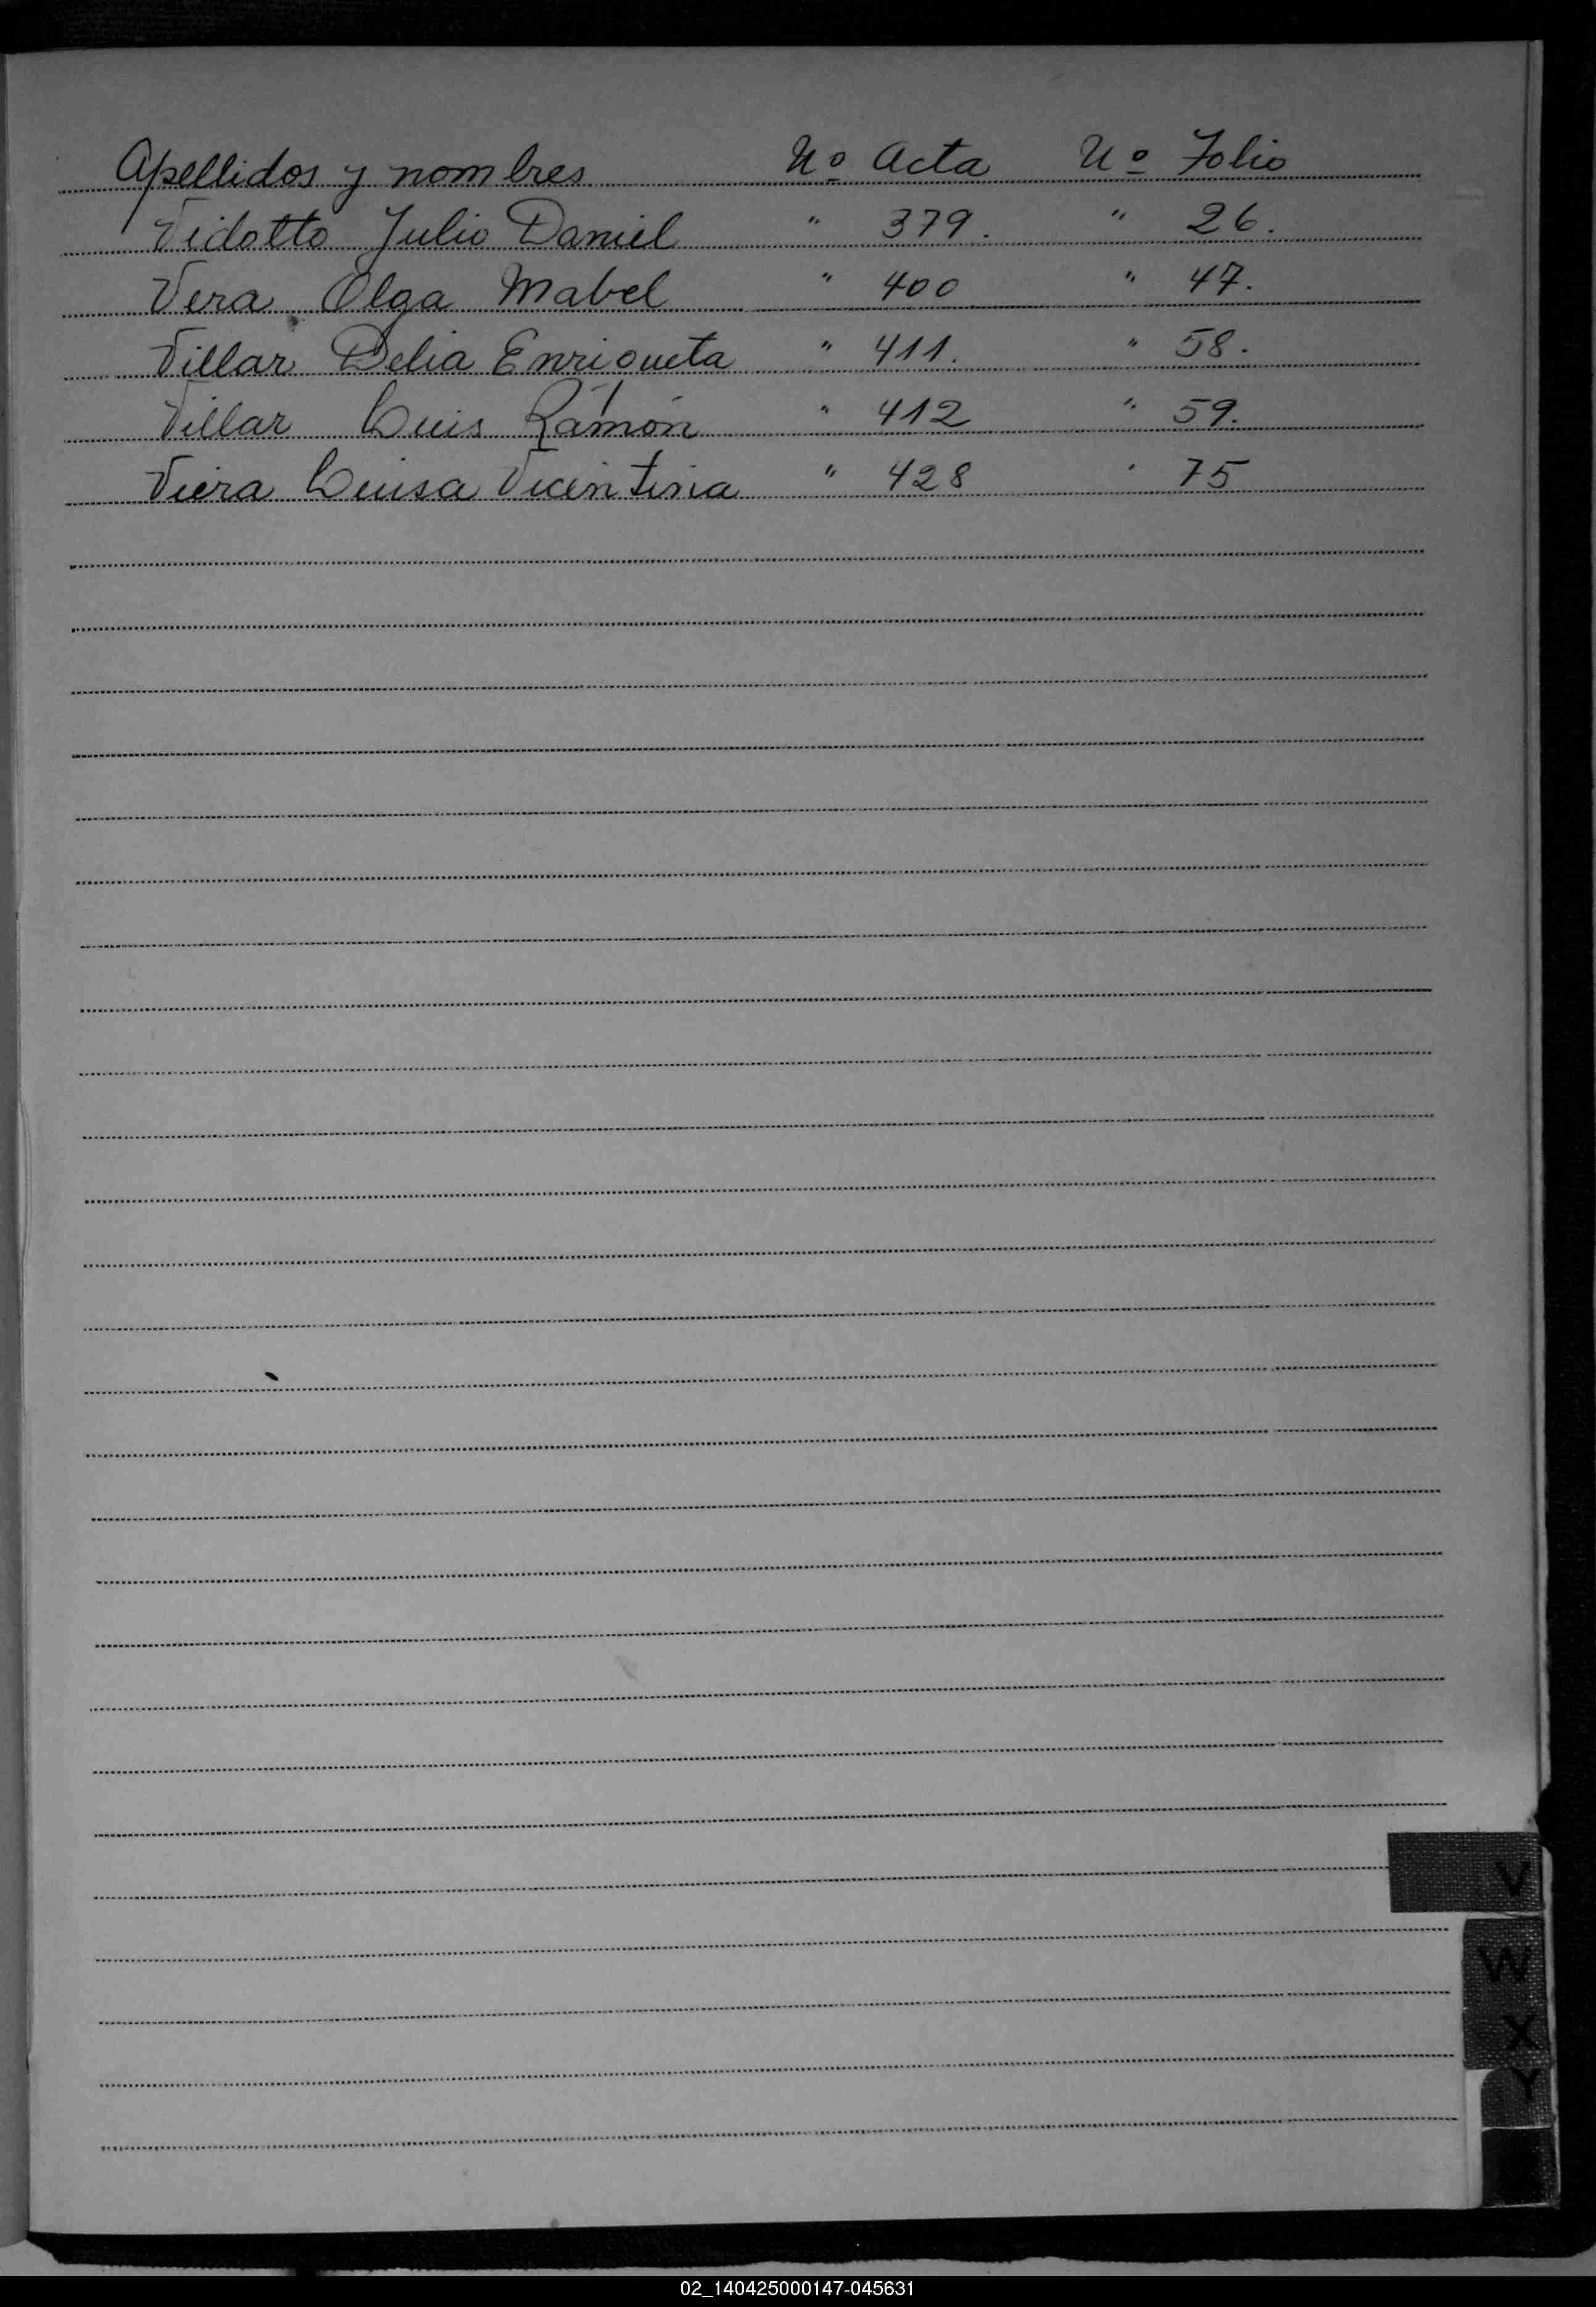 Apellidos y nombres Nº Acta Nº Folio
Vidotto Julio Daniel " 379. " 26.
Vera Olga Mabel " 400 " 47.
Villar Delia Enriqueta " 411. " 58.
Villar Luis Ramón " 412 " 59.
Viera Luisa Vicentina " 428 " 75
V
W
X
Y
02_140425000147-045631